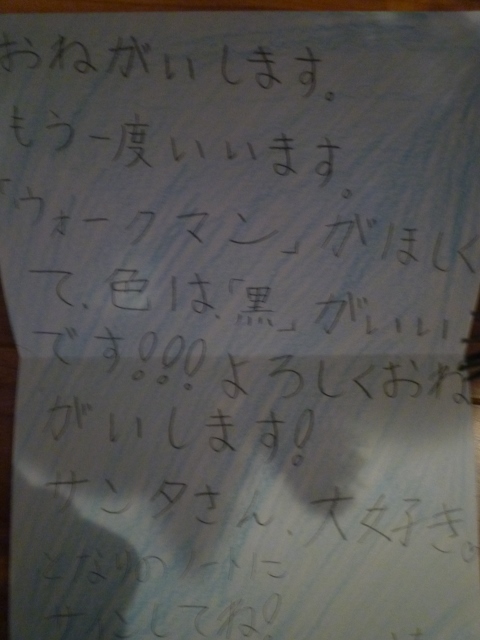 おねがいします。
もう一度いいます。
「ウォークマン」がほしく
て、色は、「黒」がいい
です!!!よろしくおね
がいします!
サンタさん、大好き。
となりの ートに
サインしてね!